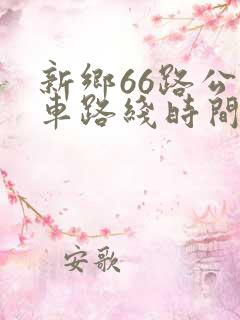 新鄉66路公
車路綫時間
安歌